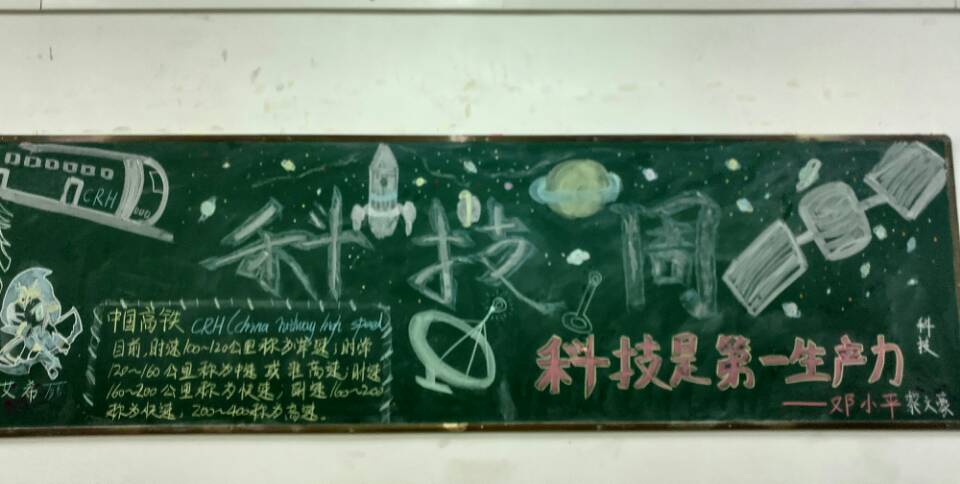 CRH
科技周
中国高铁 CRH (China railway high speed)
目前,时速100~120公里称为常速;时常
120~160公里称为中速或准高速;时速
160~200公里称为快速;时速160~200
称为快速;200~400称为高速。
艾希
科技是第一生产力
——邓小平
科技